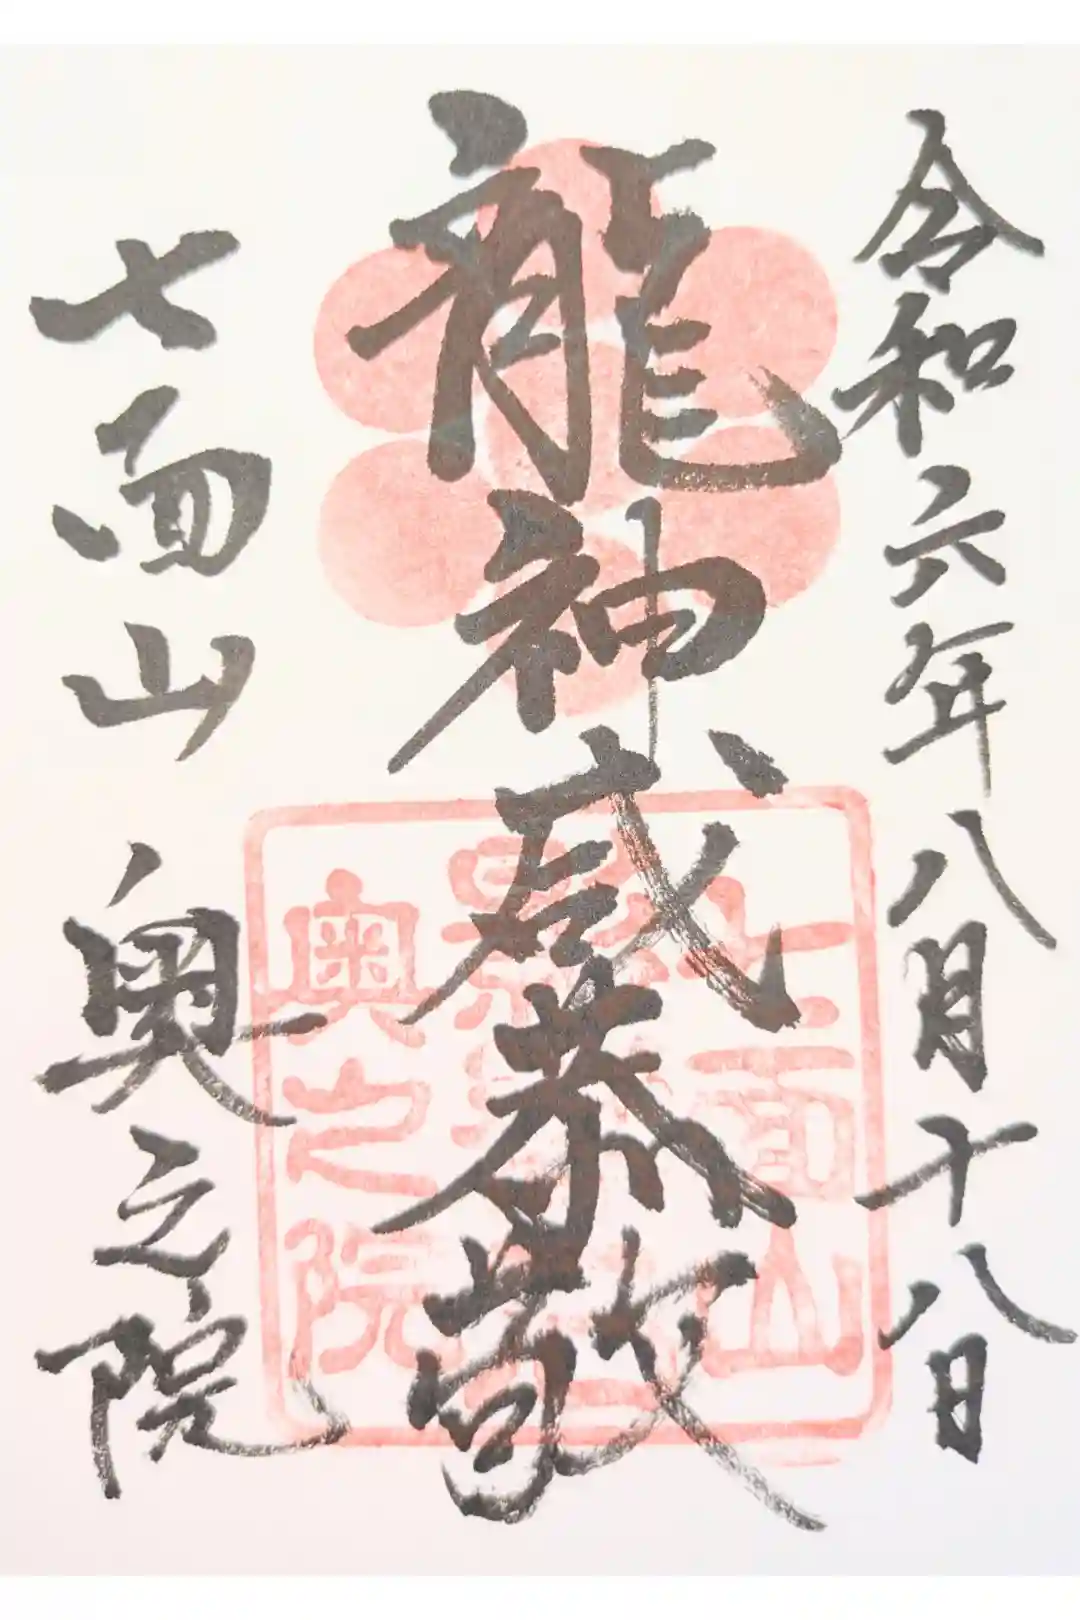 令和六年八月十八日
龍神咸恭敬
七面山 奥之院
七面山
奥之院